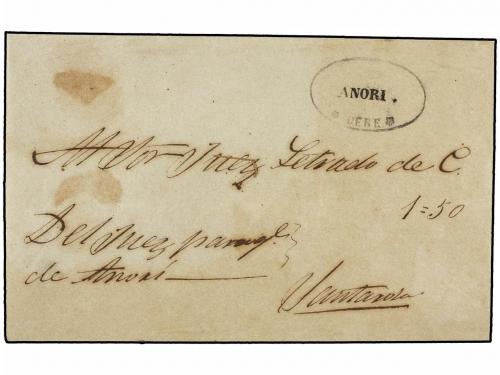 ANORI.
DEBE
Al Sor Juez Letrado de C.
1=50
Del Juez parroql.
de Anorí
Santarosa